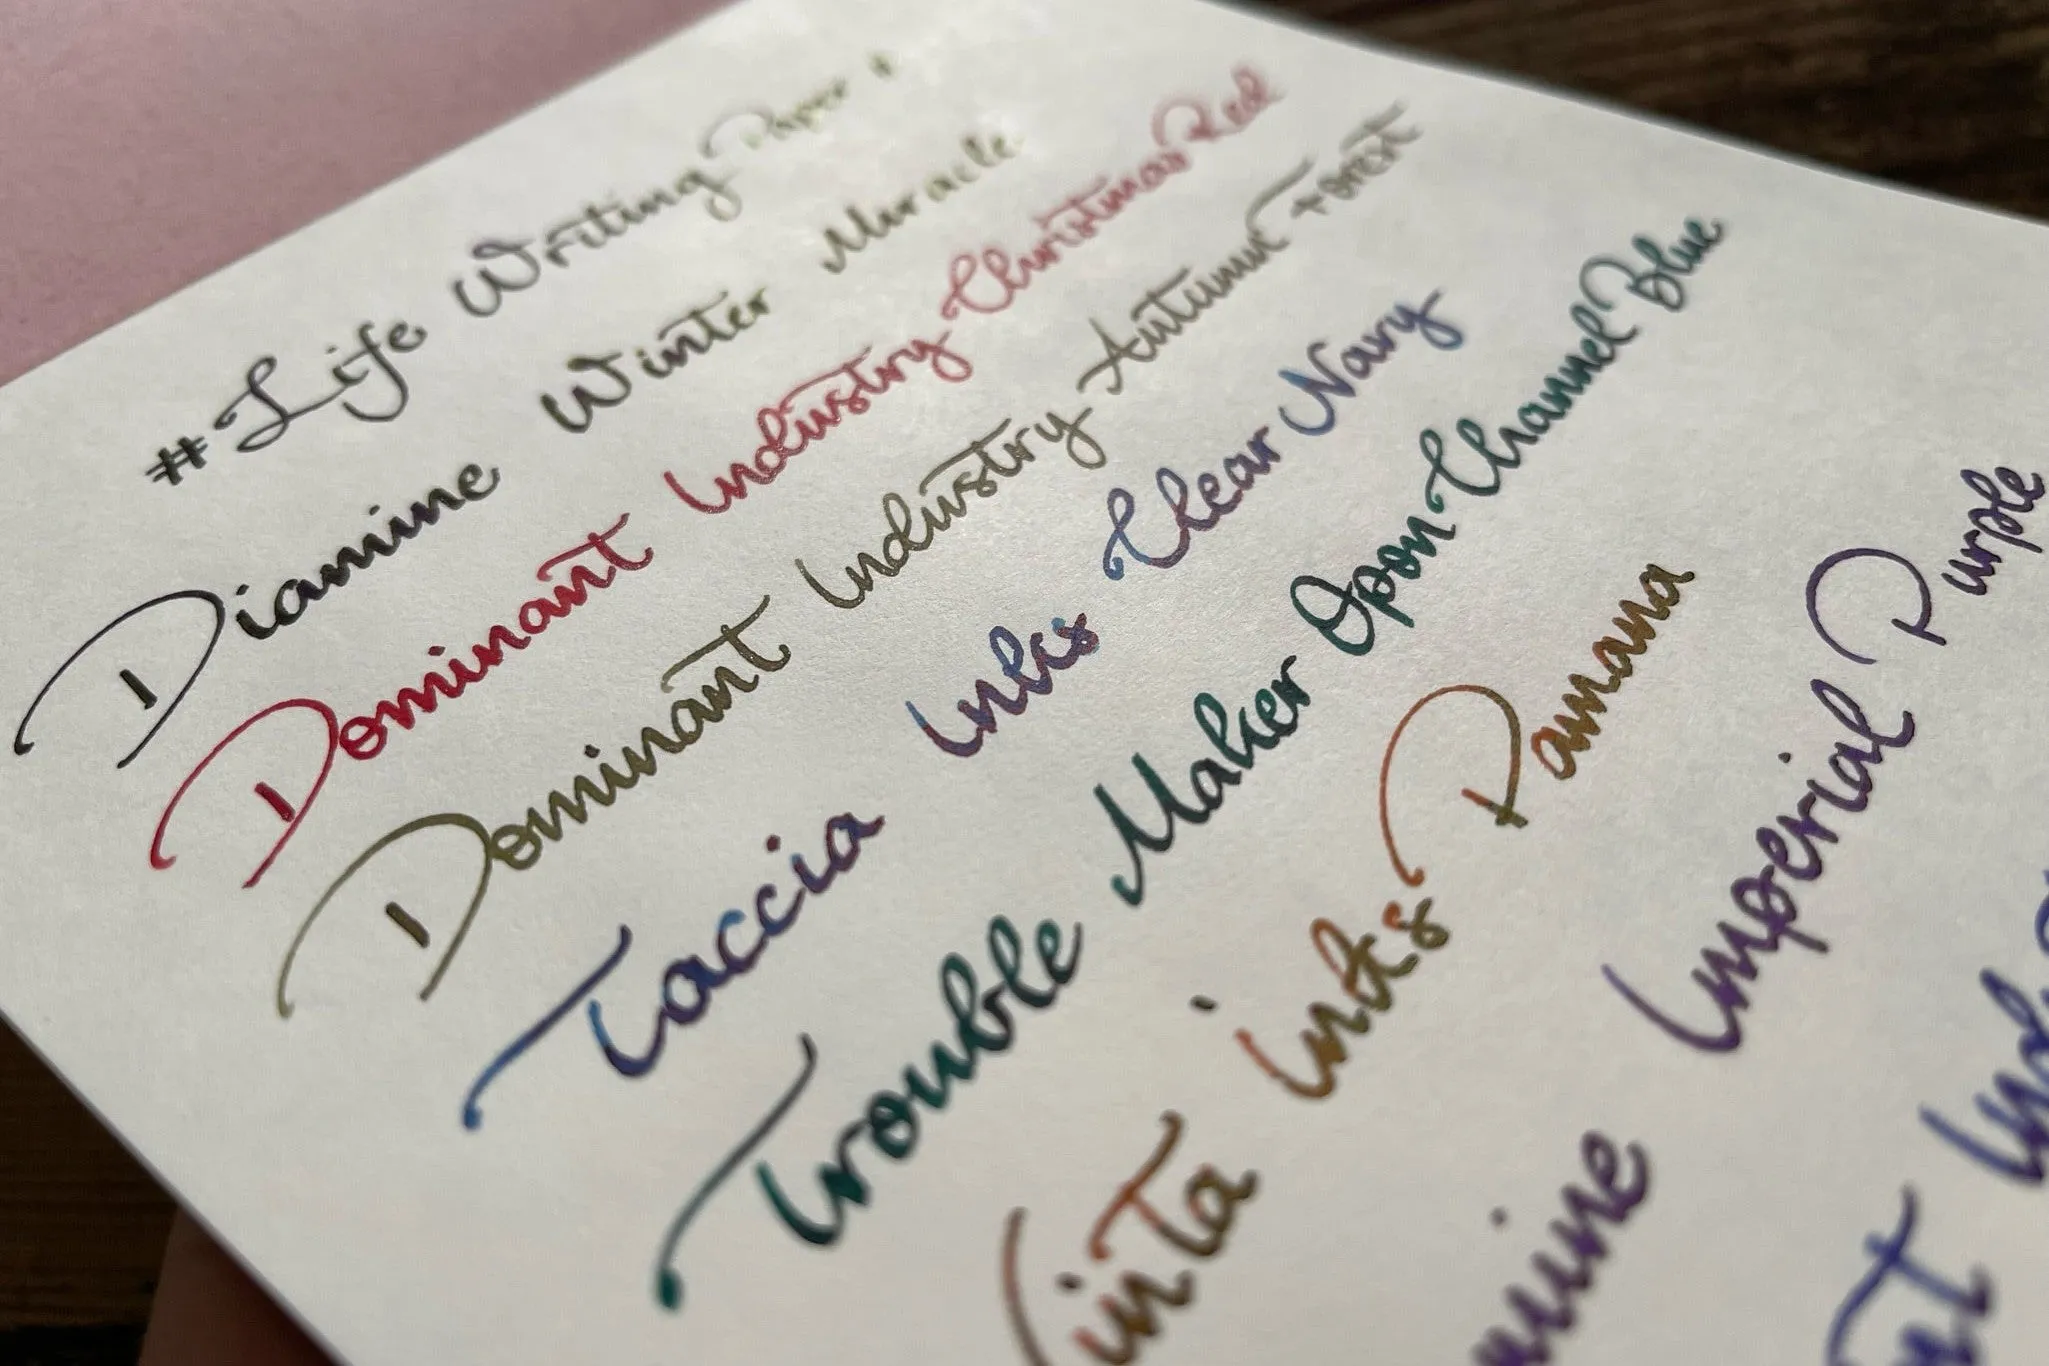 #Life Writing Paper #
Diamine Winter Miracle
Dominant Industry Christmas Red
Dominant Industry Autumn Forest
Taccia Inks Clear Navy
Trouble Maker Opon Channel Blue
inta inks Panama
mine Imperial Purple
nt Ind